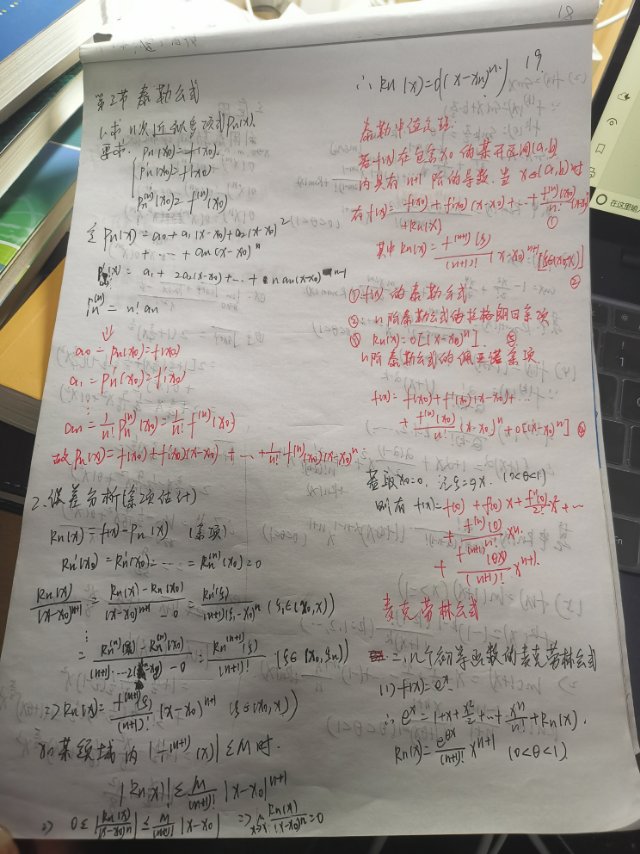 18
第2节 泰勒公式
1.求n次近似多项式Pn(x).
要求: Pn(x0)=f(x0).
Pn'(x0)=f'(x0)
Pn^(n)(x0)=f^(n)(x0)
Pn(x)=a0+a1(x-x0)+a2(x-x0)^2
+…+an(x-x0)^n
Pn'(x)=a1+2a2(x-x0)+…+nan(x-x0)^n-1
Pn^(n)=n!an
⇓
a0=Pn(x0)=f(x0)
a1=Pn'(x0)=f'(x0)
an=1/n! Pn^(n)(x0)=1/n! f^(n)(x0)
故Pn(x)=f(x0)+f'(x0)(x-x0)+…+1/n! f^(n)(x0)(x-x0)^n
2.误差分析(余项估计)
Rn(x)=f(x)-Pn(x) (余项)
Rn(x0)=Rn'(x0)=…=Rn^(n)(x0)=0
Rn(x)/(x-x0)^n+1=Rn(x)-Rn(x0)/(x-x0)^n+1-0=Rn'(ξ1)/(n+1)(ξ1-x0)^n (ξ1∈(x0,x))
⋮
=Rn^(n)(ξn)-Rn^(n)(x0)/(n+1)…2(ξn-x0)-0=Rn^(n+1)(ξ)/(n+1)! (ξ∈(x0,ξn))
=>Rn(x)=f^(n+1)(ξ)/(n+1)! (x-x0)^n+1 (ξ∈(x0,x))
x0某领域内|f^(n+1)(x)|≤M时.
|Rn(x)|≤M/(n+1)! |x-x0|^n+1
=> 0≤|Rn(x)/(x-x0)^n|≤M/(n+1)! |x-x0| =>lim x→x0 Rn(x)/(x-x0)^n=0
∴Rn(x)=o((x-x0)^n) 19
泰勒中值定理:
若f(x)在包含x0的某开区间(a,b)
内具有n+1阶的导数,当x∈(a,b)时
有f(x)=f(x0)+f'(x0)(x-x0)+…+f^(n)(x0)/n! (x-x0)^n
+Rn(x) ①
其中Rn(x)=f^(n+1)(ξ)/(n+1)! (x-x0)^n+1 [ξ∈(x0,x)] ②
①f(x)的泰勒公式
②:n阶泰勒公式的拉格朗日余项
③ Rn(x)=o[(x-x0)^n]. ③
n阶泰勒公式的佩亚诺余项.
f(x)=f(x0)+f'(x0)(x-x0)+…
+f^(n)(x0)/n! (x-x0)^n+o[(x-x0)^n] ④
若取x0=0, ξ=θx. (0<θ<1)
则有 f(x)=f(0)+f'(0)x+f''(0)/2! x^2+…
+f^(n)(0)/n! x^n.
+f^(n+1)(θx)/(n+1)! x^n+1.
麦克劳林公式
二.几个初等函数的麦克劳林公式
(1) f(x)=e^x.
∴e^x=1+x+x^2/2!+…+x^n/n!+Rn(x).
Rn(x)=e^θx/(n+1)! x^n+1 (0<θ<1).
在这里输